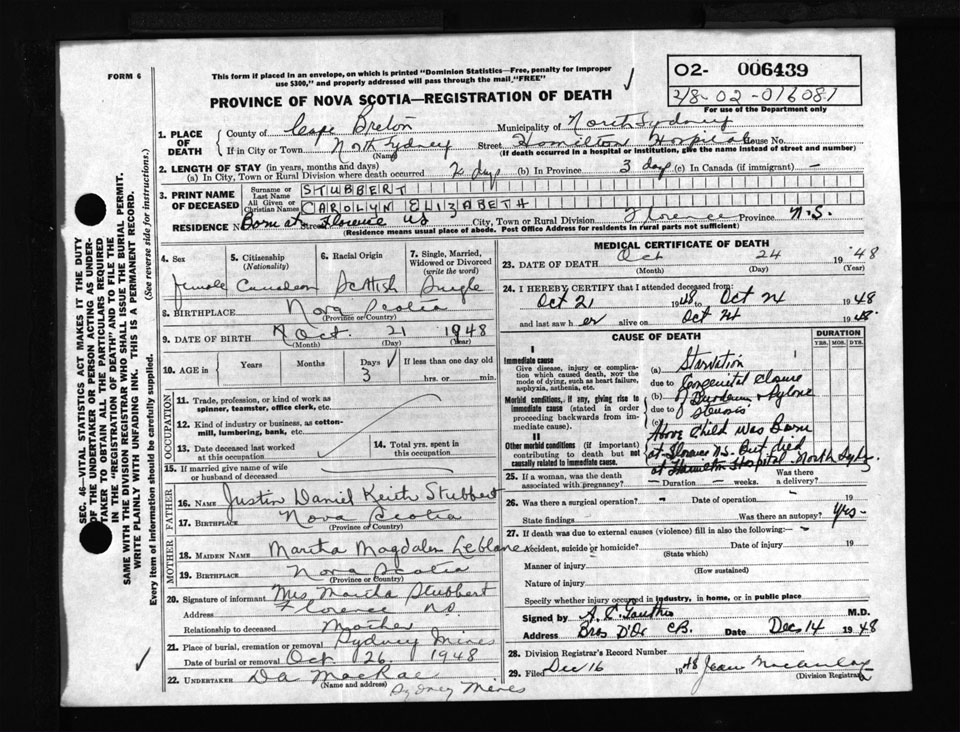 FORM 6
This form if placed in an envelope, on which is printed "Dominion Statistics—Free, penalty for improper
use $300," and properly addressed will pass through the mail, "FREE"
PROVINCE OF NOVA SCOTIA—REGISTRATION OF DEATH
02- 006439
48-02-016081
For use of the Department only
SEC. 46—VITAL STATISTICS ACT MAKES IT THE DUTY
OF THE UNDERTAKER OR PERSON ACTING AS UNDER-
TAKER TO OBTAIN ALL THE PARTICULARS REQUIRED
IN THE "REGISTRATION OF DEATH" AND TO FILE THE
SAME WITH THE DIVISION REGISTRAR WHO SHALL ISSUE THE BURIAL PERMIT.
WRITE PLAINLY WITH UNFADING INK. THIS IS A PERMANENT RECORD.
Every item of information should be carefully supplied. (See reverse side for instructions.)
1. PLACE OF DEATH
County of Cape Breton Municipality of North Sydney
If in City or Town North Sydney Street Hamilton Hospital House No.
(Name) (If death occurred in a hospital or institution, give the name instead of street and number)
2. LENGTH OF STAY (in years, months and days)
(a) In City, Town or Rural Division where death occurred 2 days (b) In Province 3 days (c) In Canada (if immigrant) —
3. PRINT NAME OF DECEASED
Surname or Last Name STUBBERT
All Given or Christian Names CAROLYN ELIZABETH
RESIDENCE No. Born at Street Florence NS City, Town or Rural Division Florence Province N.S.
(Residence means usual place of abode. Post Office Address for residents in rural parts not sufficient)
4. Sex
5. Citizenship (Nationality)
6. Racial Origin
7. Single, Married, Widowed or Divorced (write the word)
female Canadian Scottish Single
8. BIRTHPLACE Nova Scotia
(Province or Country)
9. DATE OF BIRTH Oct 21 1948
(Month) (Day) (Year)
10. AGE in Years Months Days If less than one day old
3 hrs. or min.
OCCUPATION
11. Trade, profession, or kind of work as spinner, teamster, office clerk, etc.
12. Kind of industry or business, as cotton-mill, lumbering, bank, etc.
13. Date deceased last worked at this occupation
14. Total yrs. spent in this occupation
15. If married give name of wife or husband of deceased
FATHER
16. NAME Justin Daniel Keith Stubbert
17. BIRTHPLACE Nova Scotia
(Province or Country)
MOTHER
18. MAIDEN NAME Martha Magdalen Leblanc
19. BIRTHPLACE Nova Scotia
(Province or Country)
20. Signature of informant Mrs Martha Stubbert
Address Florence NS.
Relationship to deceased Mother
21. Place of burial, cremation or removal Sydney Mines
Date of burial or removal Oct 26. 1948
22. UNDERTAKER DA MacRae
(Name and address) Sydney Mines
MEDICAL CERTIFICATE OF DEATH
23. DATE OF DEATH Oct 24 1948
(Month) (Day) (Year)
24. I HEREBY CERTIFY that I attended deceased from:
Oct 21 1948 to Oct 24 1948
and last saw her alive on Oct 24 1948.
CAUSE OF DEATH DURATION
YRS. MOS. DYS.
I
Immediate cause
Give disease, injury or complication which caused death, NOT the mode of dying, such as heart failure, asphyxia, asthenia, etc.
(a) Starvation
due to Congenital
Morbid conditions, if any, giving rise to immediate cause (stated in order proceeding backwards from immediate cause).
(b) of
due to Stenosis
(c)
II
Other morbid conditions (if important) contributing to death but not causally related to immediate cause.
Above child was Born
at Florence N.S. But died
at Hamilton Hospital North Sydney
25. If a woman, was the death associated with pregnancy? — Duration — weeks. Was there a delivery?
26. Was there a surgical operation? — Date of operation — 19
State findings Was there an autopsy? Yes-
27. If death was due to external causes (violence) fill in also the following:—
Accident, suicide or homicide? Date of injury 19
(State which)
Manner of injury
(How sustained)
Nature of injury
Specify whether injury occurred in industry, in home, or in public place
Signed by A. C. Gouthro M.D.
Address Bras D'Or CB. Date Dec 14 1948
28. Division Registrar's Record Number
29. Filed Dec 16 1948 Jean
(Division Registrar)